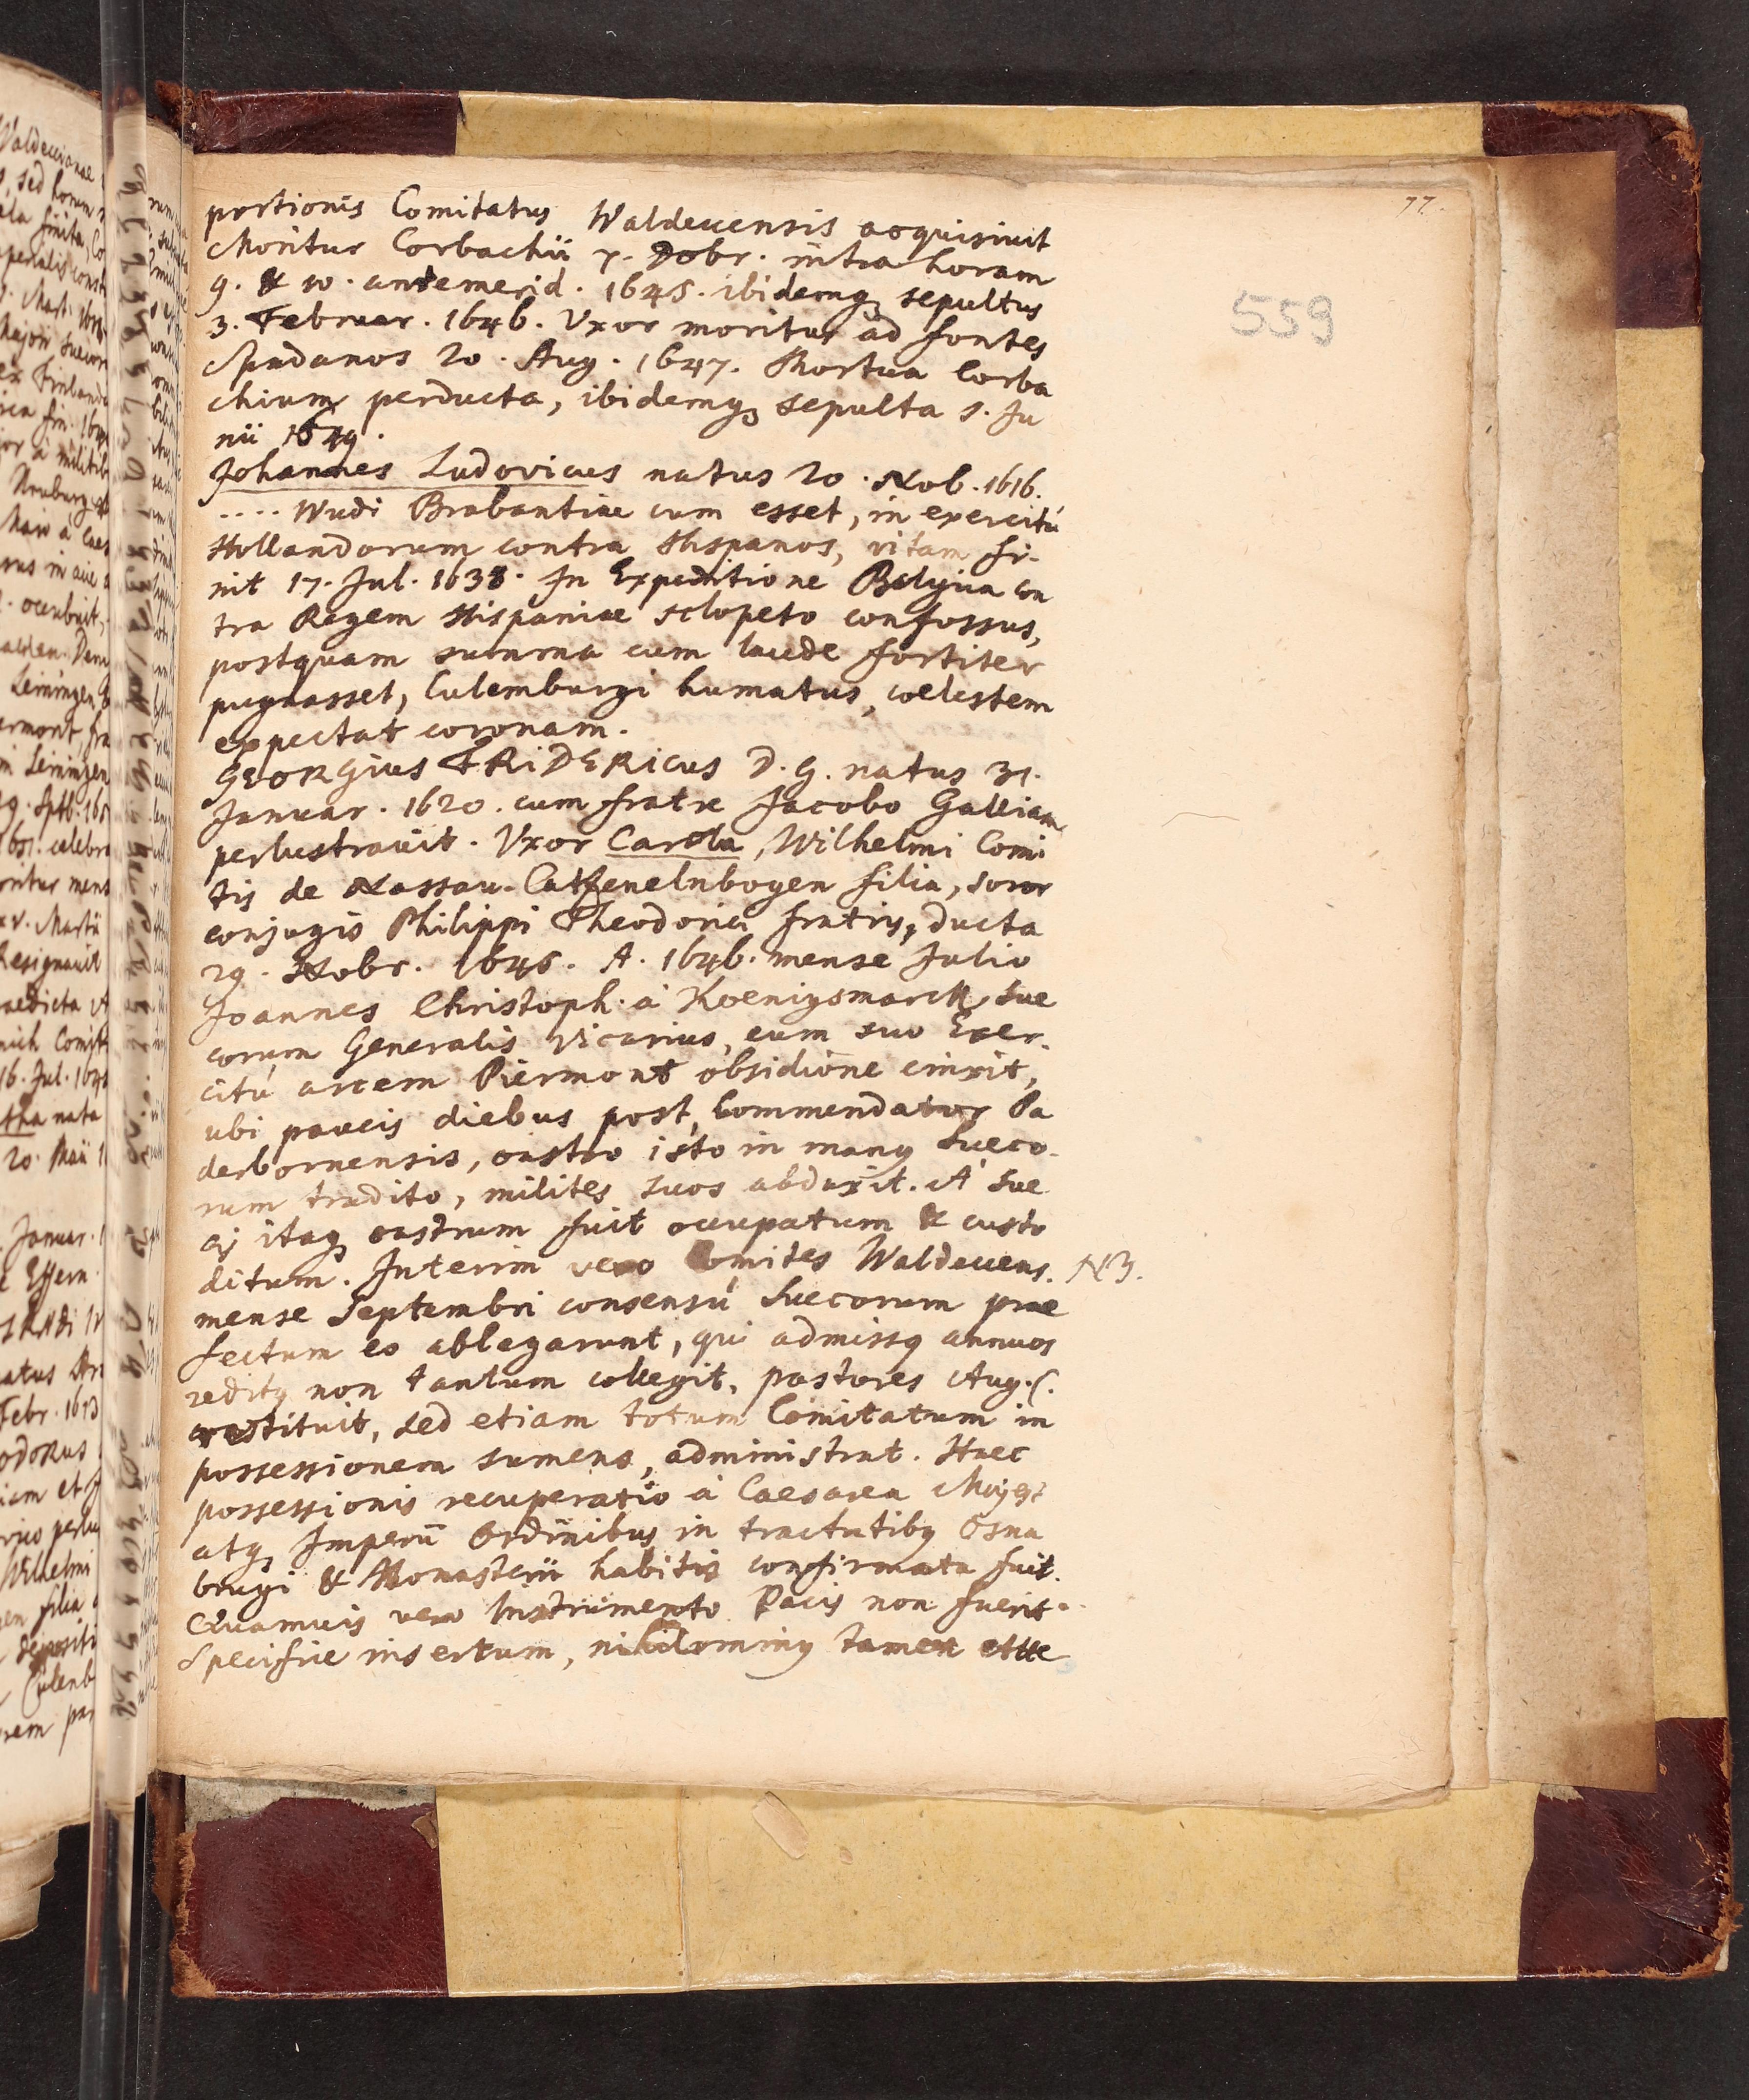 77.
559
portionis Comitatus Waldeccensis acquisiuit
Moritur Corbachii 7. Dobr. intra horam
9. & 10. antemerid. 1645. ibidemq3 sepultus
3. Februar. 1646. Vxor moritur ad fontes
Spadanos 20. Aug. 1647. Mortua Corba
chium perducta, ibidemq3 sepulta 5. Ju
nii 1649.
Johannes Ludovicus natus 20. Nob. 1616.
.... Wudi Brabantiae cum esset, in exercitú
Hollandorum contra Hispanos, vitam fi-
nit 17. Jul. 1638. In Expeditione Belgica con
tra Regem Hispaniae sclopeto confossus,
postquam summa cum laude fortiter
pugnasset, Culemburgi humatus, coelestem
expectat coronam.
GEORGius FRiDERicus D. G. natus 31.
Januar. 1620. cum fratre Jacobo Galliam
perlustrauit. Vxor Carola, Wilhelmi Comi
tis de Nassau-Catzenelnbogen filia, soror
conjugis Philippi Theodorici fratris, ducta
29. Nobr. 1645. A. 1646. mense Julio
Joannes Christoph. á Koenigsmarck, Sue
corum Generalis Vicarius, cum suo Exer-
citú arcem Piermont obsidione cinxit,
ubi paucis diebus post, Commendator Pa
derbornensis, castro isto in manq Sueco-
rum tradito, milites suos abduxit. A Sue
cis itaq3 castrum fuit occupatum & custo
ditum. Interim vero Comites Waldeccens. NB.
mense Septembri consensú Suecorum prae
fectum eo ablegarunt, qui admissq annuos
reditq non tantum collegit, pastores Aug. C.
restituit, sed etiam totum Comitatum in
possessionem sumens, administrat. Haec
possessionis recuperatio á Caesarea Majest
atq3 Imperii Ordinibus in tractatibq Osna
brugi & Monasterii habitis confirmata fuit.
Quamuis vero Instrumento Pacis non fuerit
specifice insertum, nihilominq tamen